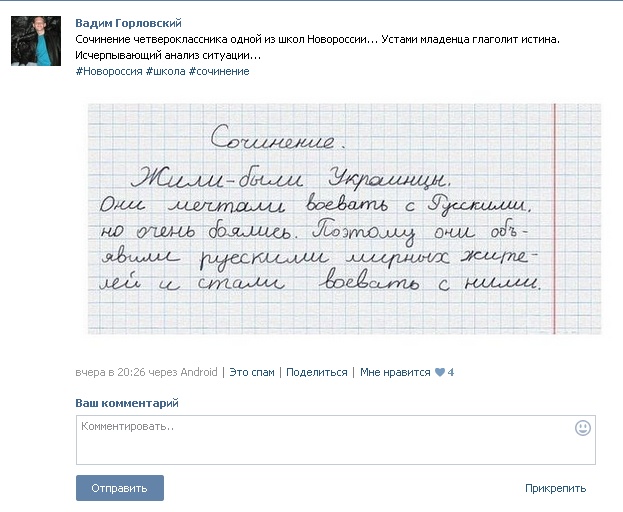 Вадим Горловский
Сочинение четвероклассника одной из школ Новороссии... Устами младенца глаголит истина.
Исчерпывающий анализ ситуации...
#Новороссия #школа #сочинение
Сочинение.
Жили-были Украинцы.
Они мечтали воевать с Русскими,
но очень боялись. Поэтому они объ-
явили русскими мирных жите-
лей и стали воевать с ними.
вчера в 20:26 через Android | Это спам | Поделиться | Мне нравится 4
Ваш комментарий
Комментировать..
Отправить
Прикрепить